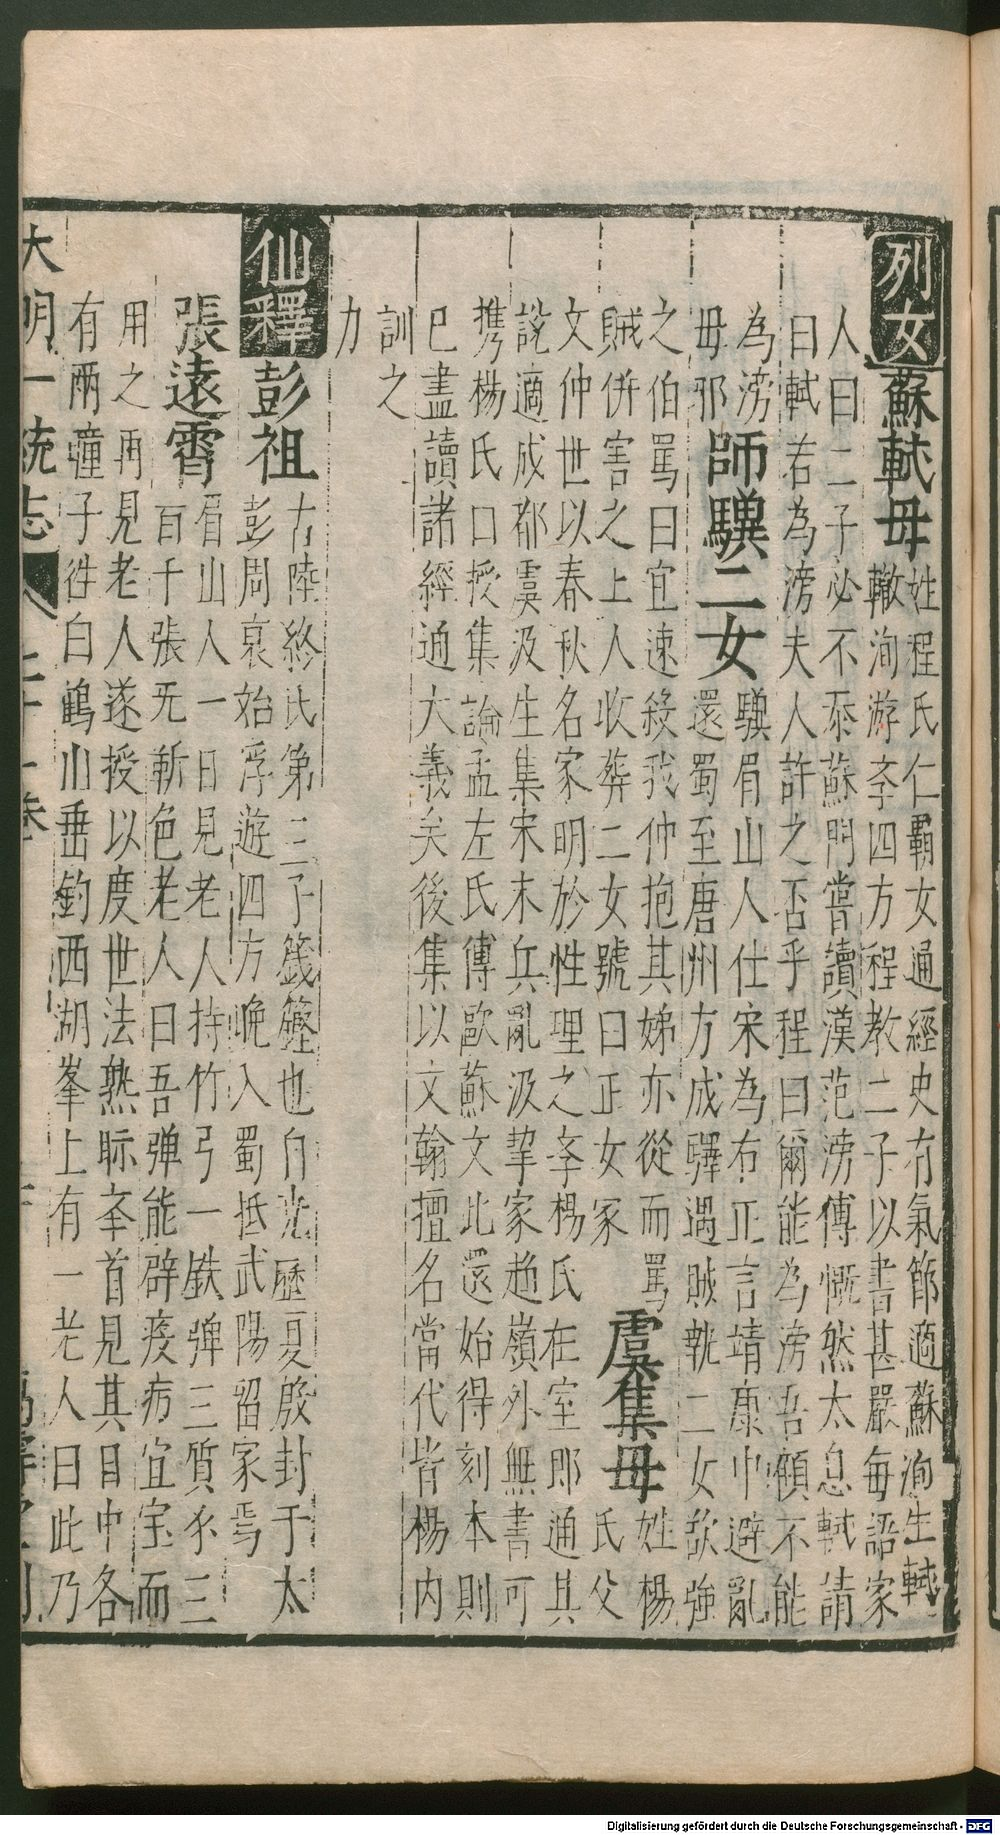 列女
蘇軾母
姓程氏仁霸女通經史有氣節適蘇洵生軾
轍洵游學四方程教二子以書甚嚴每語家
人曰二子必不忝蘇門嘗讀漢范滂傳慨然太息軾請
曰軾若為滂夫人許之否乎程曰爾能為滂吾顧不能
為滂母邪
師驥二女
驥眉山人仕宋為右正言靖康中避亂
還蜀至唐州方成驛遇賊執二女欲強
之伯罵曰宜速殺我仲抱其娣亦從而罵
賊併害之上人收葬二女號曰正女冢
虞集母
姓楊
氏父
文仲世以春秋名家明於性理之李楊氏在室即通其
說適成都虞汲生集宋末兵亂汲挈家趨嶺外無書可
携楊氏口授集論孟左氏傳歐蘇文比還始得刻本則
已盡讀諸經通大義矣後集以文翰擅名當代皆楊內
訓之
力
仙釋
彭祖
古陸終氏第三子籛鏗也自堯歷夏殷封于太
彭周衰始浮遊四方晚入蜀抵武陽留家焉
張遠霄
眉山人一日見老人持竹弓一鐵彈三質錢三
百千張无靳色老人曰吾彈能辟疫病宜宝而
用之再見老人遂授以度世法熟眎李首見其目中各
有兩瞳子往白鶴山垂釣西湖峯上有一老人曰此乃
大明一統志 七十一卷
Digitalisierung gefördert durch die Deutsche Forschungsgemeinschaft - DFG